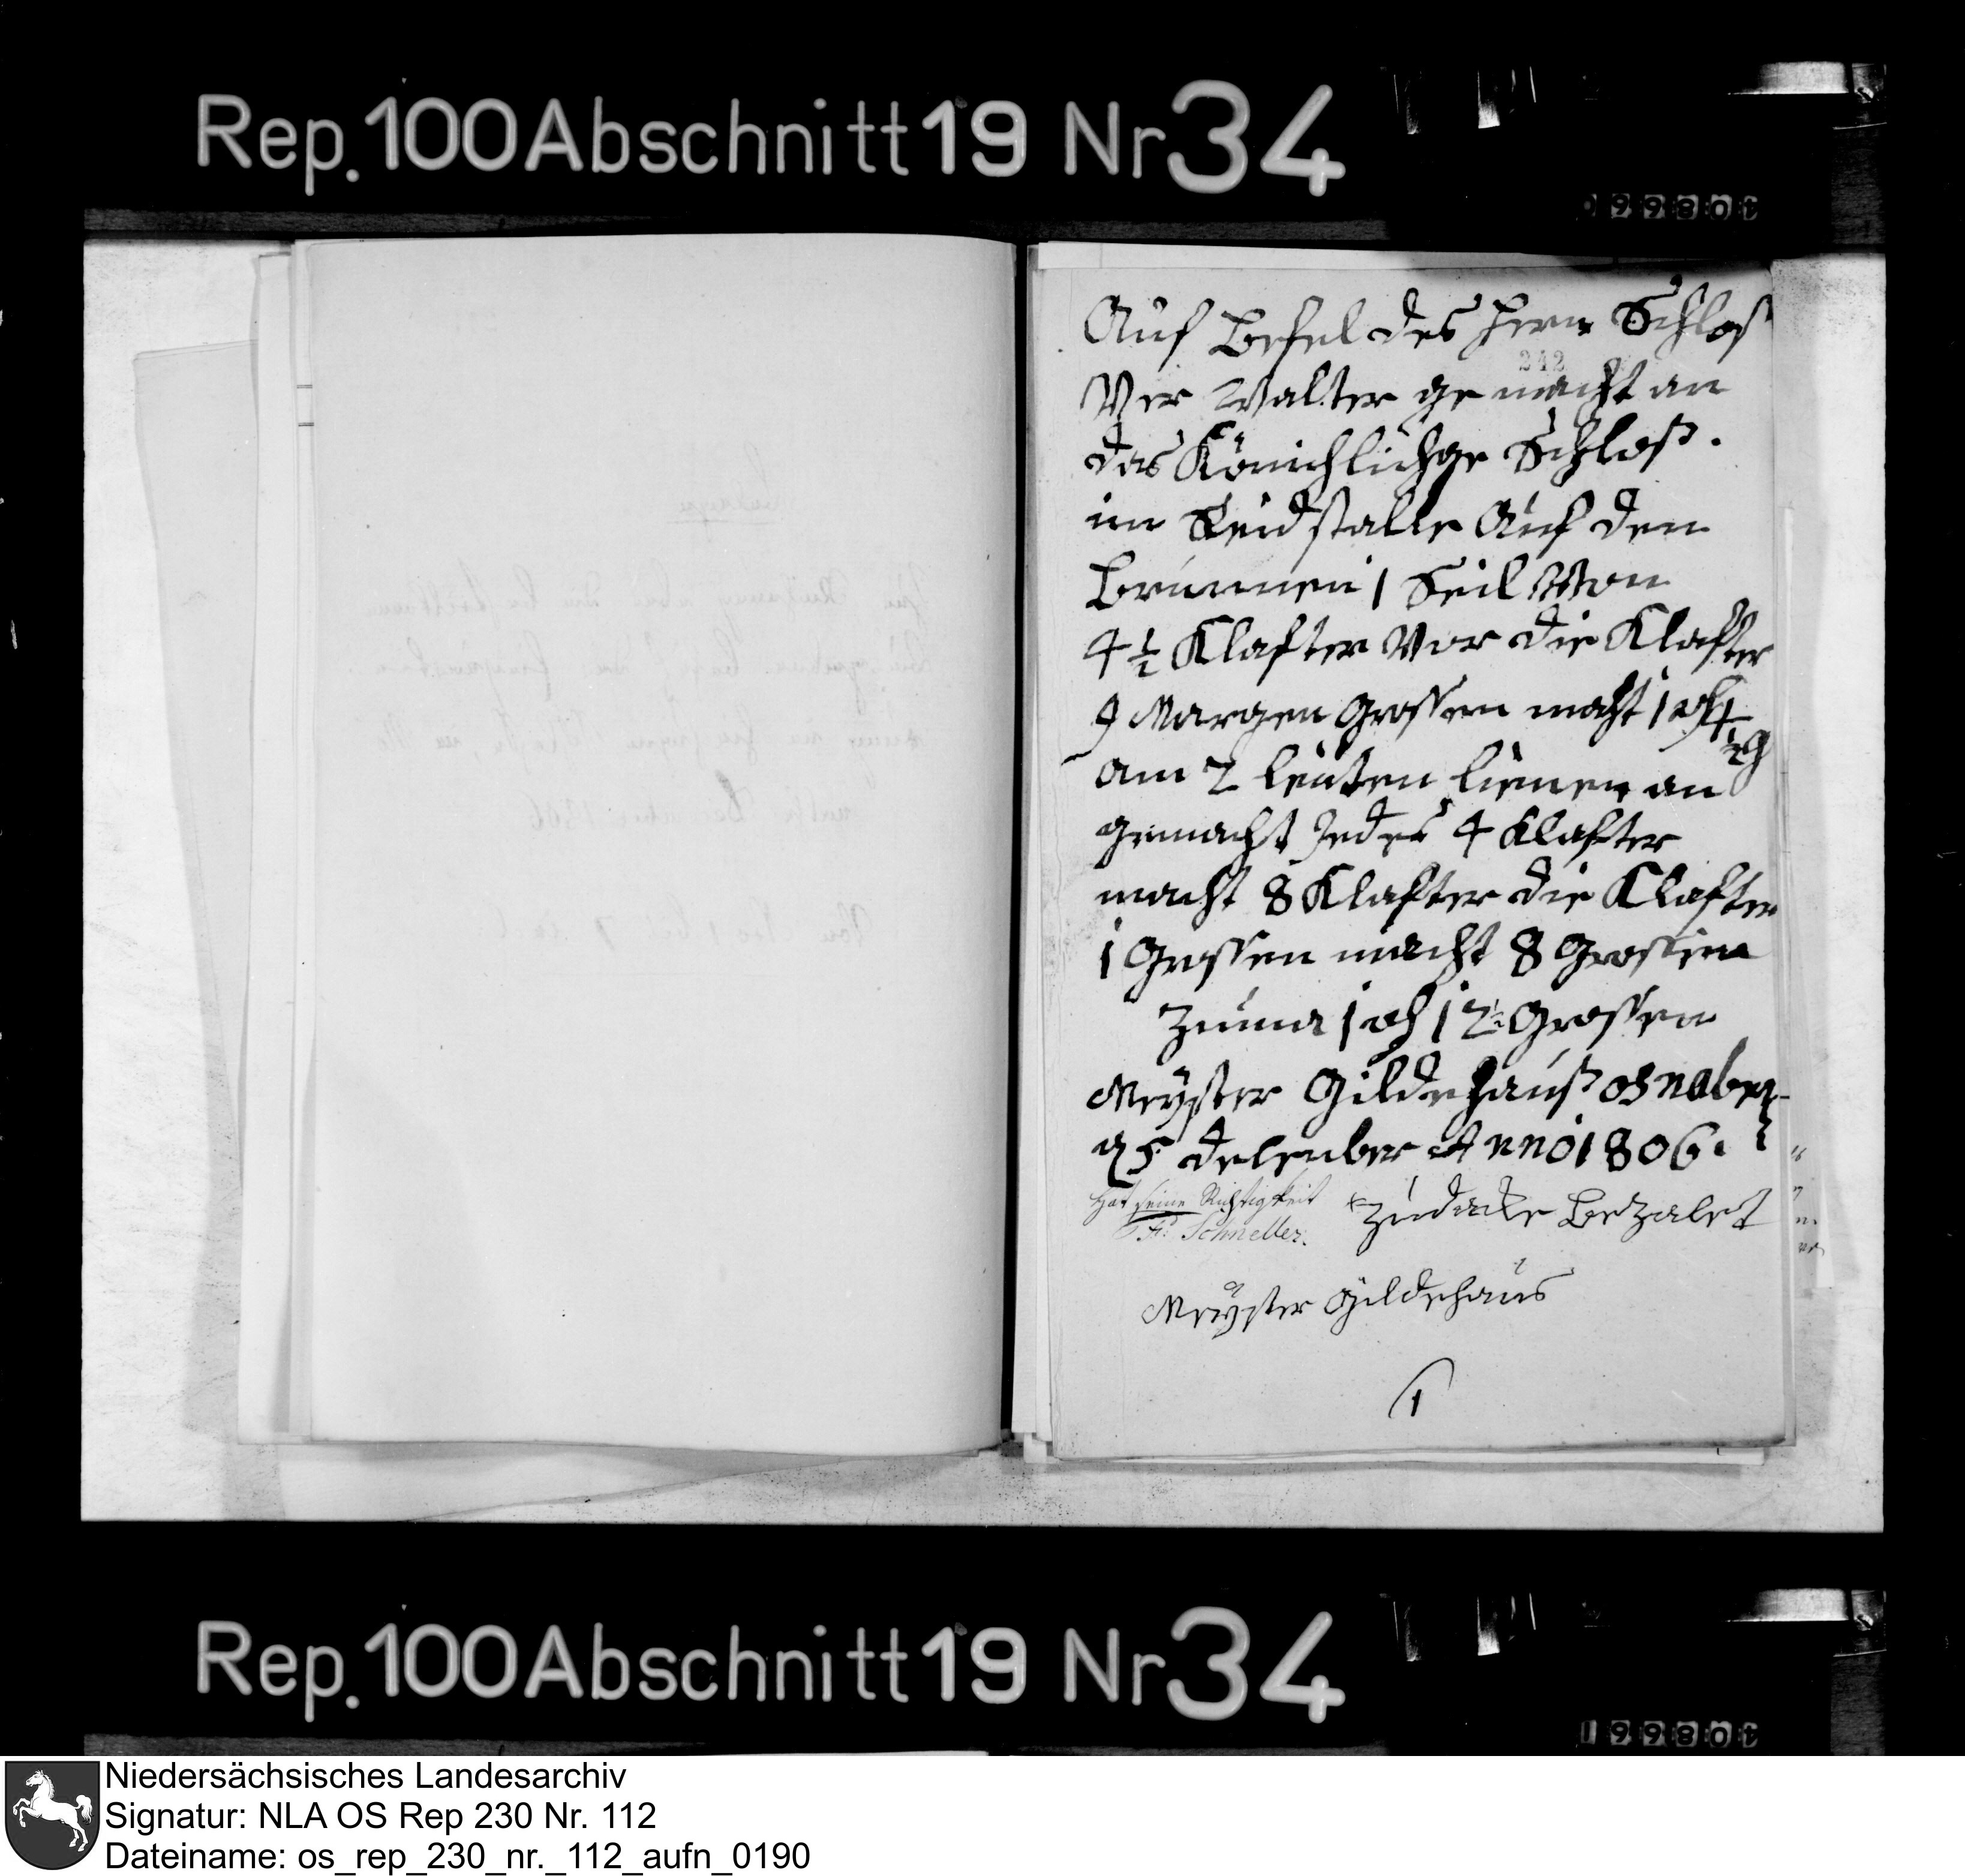 Rep. 100 Abschnitt 19 Nr 34
Auf Befel des Herrn Schlos
242
Ver Walter ge macht an
das Königlichge Schloß.
im Reid stalle Auf den
Brunnen 1 Seil Von
4 1/2 Klafter Vor die Klafter
9 Margen Grossen macht 1 rth
am 2 leuten lienen an
gemacht Jedes 4 Klafter
macht 8 Klafter die Klafter
1 Grossen macht 8 Grossen
1 rth 12 1/2 Grossen
Meyster Gildehauß osnaber
25 december Anno 1806.
Hat seine Richtigkeit
zu dancke Bezalet
Schneller.
Meyster Gildehaus
1
Rep. 100 Abschnitt 19 Nr 34
Niedersächsisches Landesarchiv
Signatur: NLA OS Rep 230 Nr. 112
Dateiname: os_rep_230_nr._112_aufn_0190